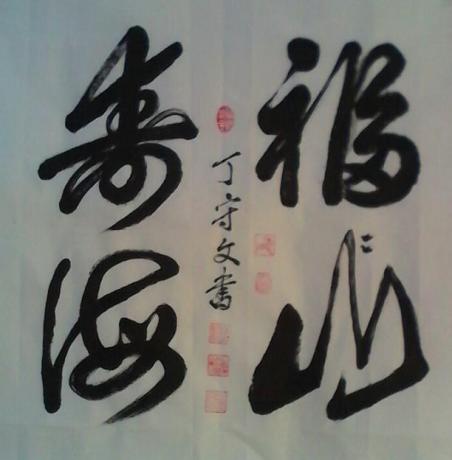 福山
寿海
丁守文書